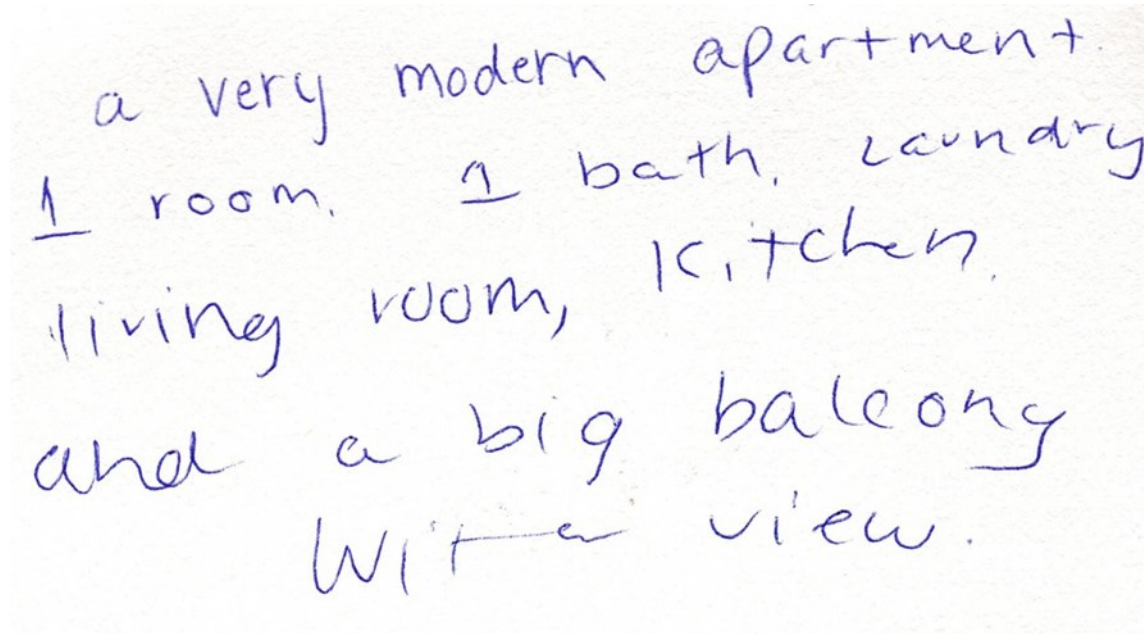 a very modern apartment.
1 room. 1 bath. Laundry
living room, Kitchen.
and a big balcony
With view.